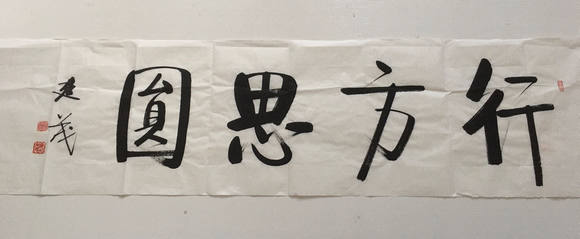 行方思圓
建茂